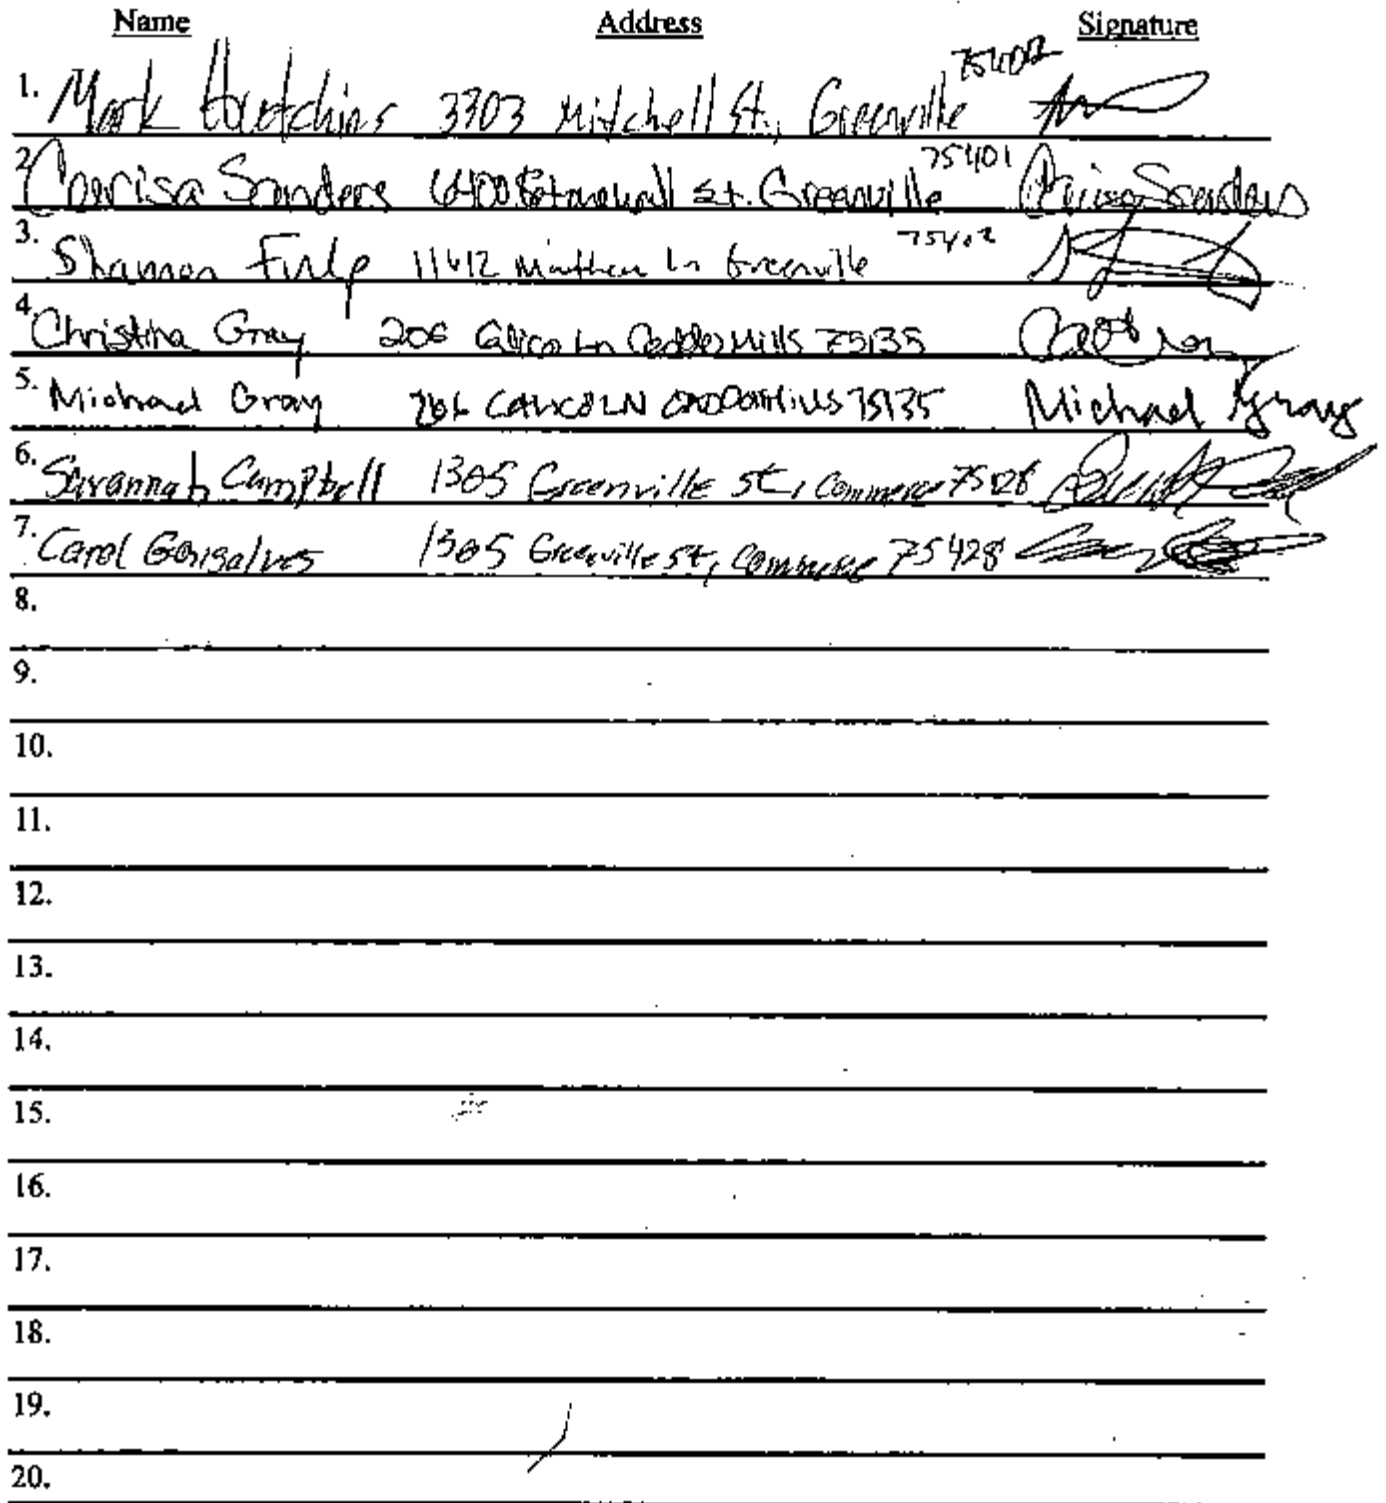 Name Address Signature
1. Mark Hutchins 3303 Mitchell St., Greenville 75402
2. Charisa Sanders 6400 St. Greenville 75401 Sanders
3. Shannon Fulp 11612 Ln Greenville 75402
4. Christina Gray 206 Calico Ln Caddo Mills 75135
5. Michael Gray 206 CALICO LN CADDO MILLS 75135 Michael Gray
6. Savannah Campbell 1305 Greenville St, Commerce
7. Carol Gonsalves 1305 Greenville St, Commerce 75428
8.
9.
10.
11.
12.
13.
14.
15.
16.
17.
18.
19.
20.